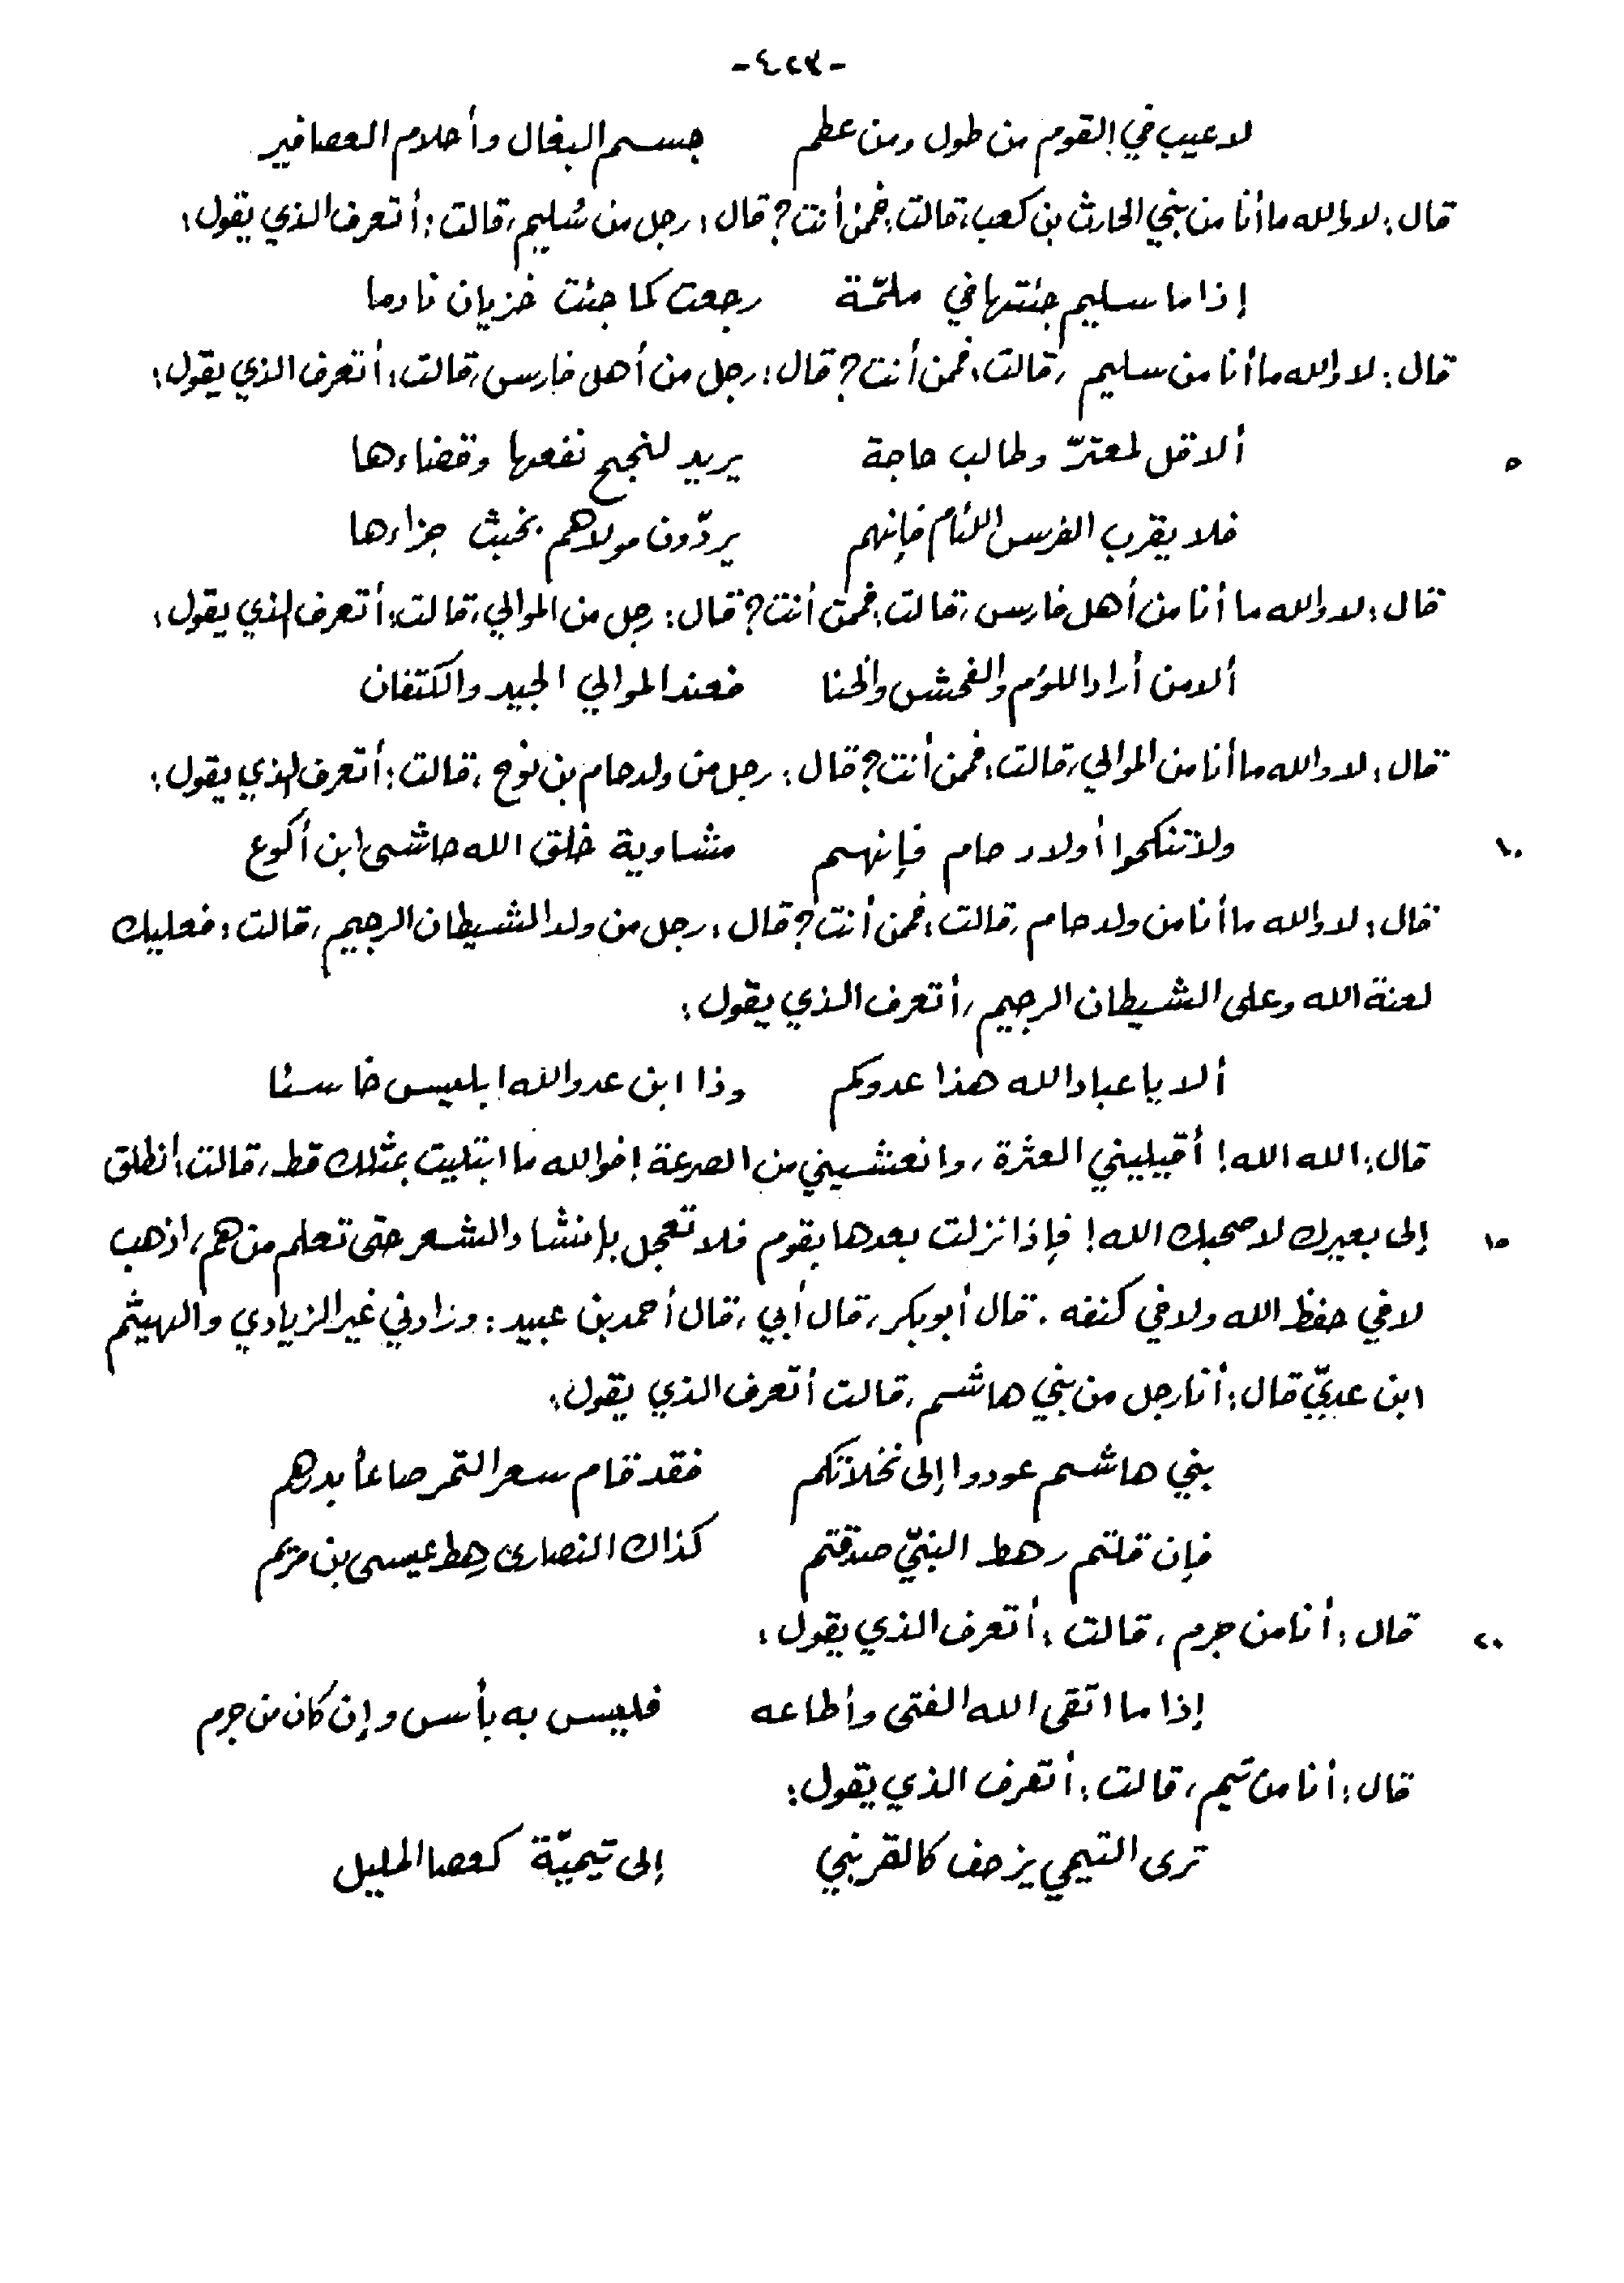 -٤٢٣-
لاعيب في القوم من طول ومن عظم جسم البغال وأحلام العصافير
قال: لا والله ما أنا من بني الحارث بن كعب، قالت: فمن أنت؟ قال: رجل من سُليم، قالت: أتعرف الذي يقول:
إذا ما سليم جئتها في ملمّة رجعت كما جئت خزيان نادما
قال: لا والله ما أنا من سليم، قالت: فمن أنت؟ قال: رجل من أهل فارس، قالت: أتعرف الذي يقول:
٥ ألا قل لمعترّ وطالب حاجة يريد لنجح نفعها وقضاءها
فلا يقرب الفرس اللئام فإنهم يردّون مولاهم بخبث جزاءها
قال: لا والله ما أنا من أهل فارس، قالت: فمن أنت؟ قال: رجل من الموالي، قالت: أتعرف الذي يقول:
ألا من أراد اللؤم والفحش والخنا فعند الموالي الجيد والكتفان
قال: لا والله ما أنا من الموالي، قالت: فمن أنت؟ قال: رجل من ولد حام بن نوح، قالت: أتعرف الذي يقول:
١٠ ولا تنكحوا أولاد حام فإنهم مشاوية خلق الله حاشى ابن أكوع
قال: لا والله ما أنا من ولد حام، قالت: فمن أنت؟ قال: رجل من ولد الشيطان الرجيم، قالت: فعليك
لعنة الله وعلى الشيطان الرجيم، أتعرف الذي يقول:
ألا يا عباد الله هذا عدوكم وذا ابن عدو الله إبليس خاسئا
قال: الله الله! أقيليني العثرة، وانعشيني من الصرعة! فوالله ما ابتليت بمثلك قط، قالت: انطلق
١٥ إلى بعيرك لا صحبك الله! فإذا نزلت بعدها بقوم فلا تعجل بإنشاد الشعر حتى تعلم من هم، اذهب
لا في حفظ الله ولا في كنفه. قال أبو بكر، قال أبي، قال أحمد بن عبيد: وزادني غير الزيادي والهيثم
ابن عديّ قال: أنا رجل من بني هاشم، قالت أتعرف الذي يقول:
بني هاشم عودوا إلى نخلاتكم فقد قام سعر التمر صاعاً بدرهم
فإن قلتم رهط النبيّ صدقتم كذاك النصارى رهط عيسى بن مريم
٢٠ قال: أنا من جرم، قالت: أتعرف الذي يقول:
إذا ما اتقى الله الفتى وأطاعه فليس به بأس وإن كان من جرم
قال: أنا من تيم، قالت: أتعرف الذي يقول:
ترى التيمي يزحف كالقرنبي إلى تيميّة كعصا المليل